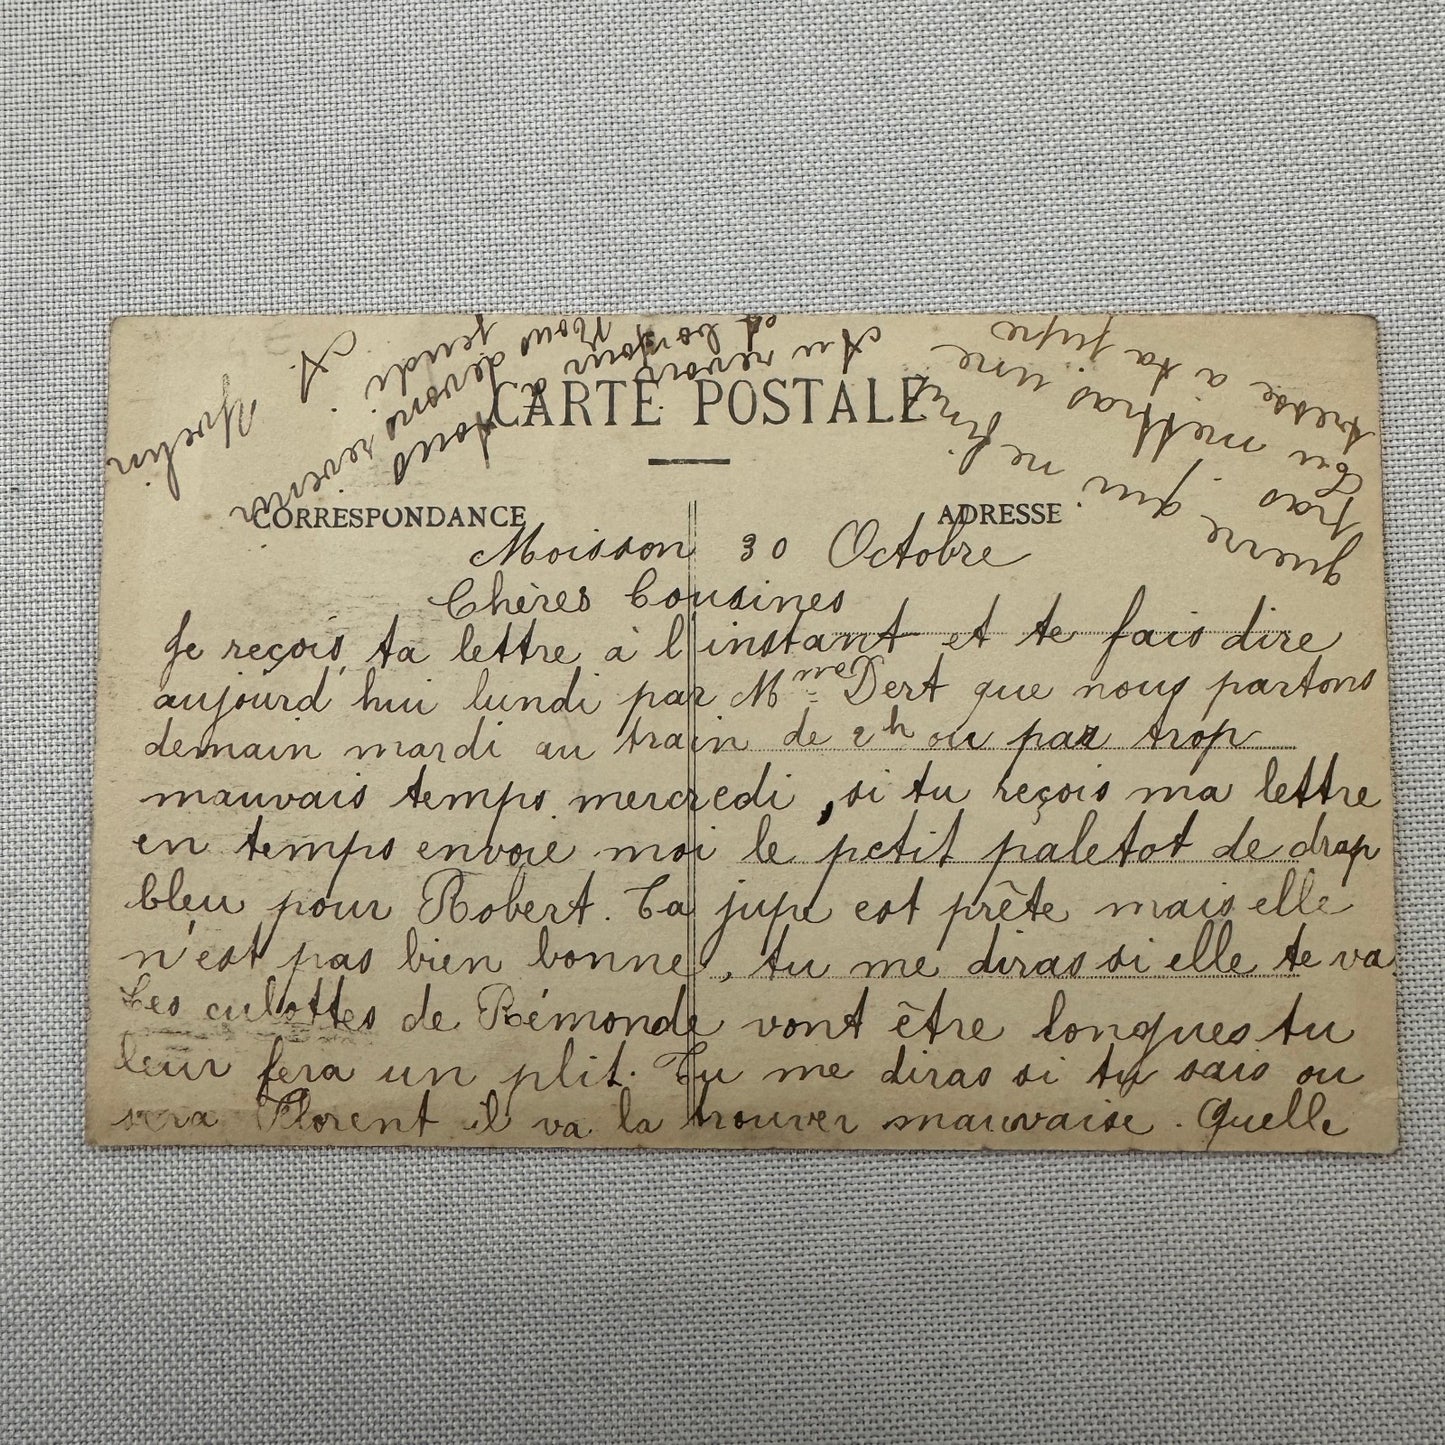 CARTE POSTALE
CORRESPONDANCE
ADRESSE
Moisson 30 Octobre
Chères Cousines
Je reçois ta lettre à l'instant et te fais dire
aujourd'hui lundi par Mme Dert que nous partons
demain mardi au train de 2h ou par trop
mauvais temps mercredi, si tu reçois ma lettre
en temps envoie moi le petit paletot de drap
bleu pour Robert. Ta jupe est prête mais elle
n'est pas bien bonne, tu me diras si elle te va.
Les culottes de Rémonde vont être longues tu
leur fera un plit. Tu me diras si tu sais ou
sera Florent il va la trouver mauvaise. Quelle
guerre qui ne finit
pas
Tu mettras une
tresse a ta jupe
Au revoir
et bonjour a tous
Nous devons revenir
jeudi.
A. Yvelin